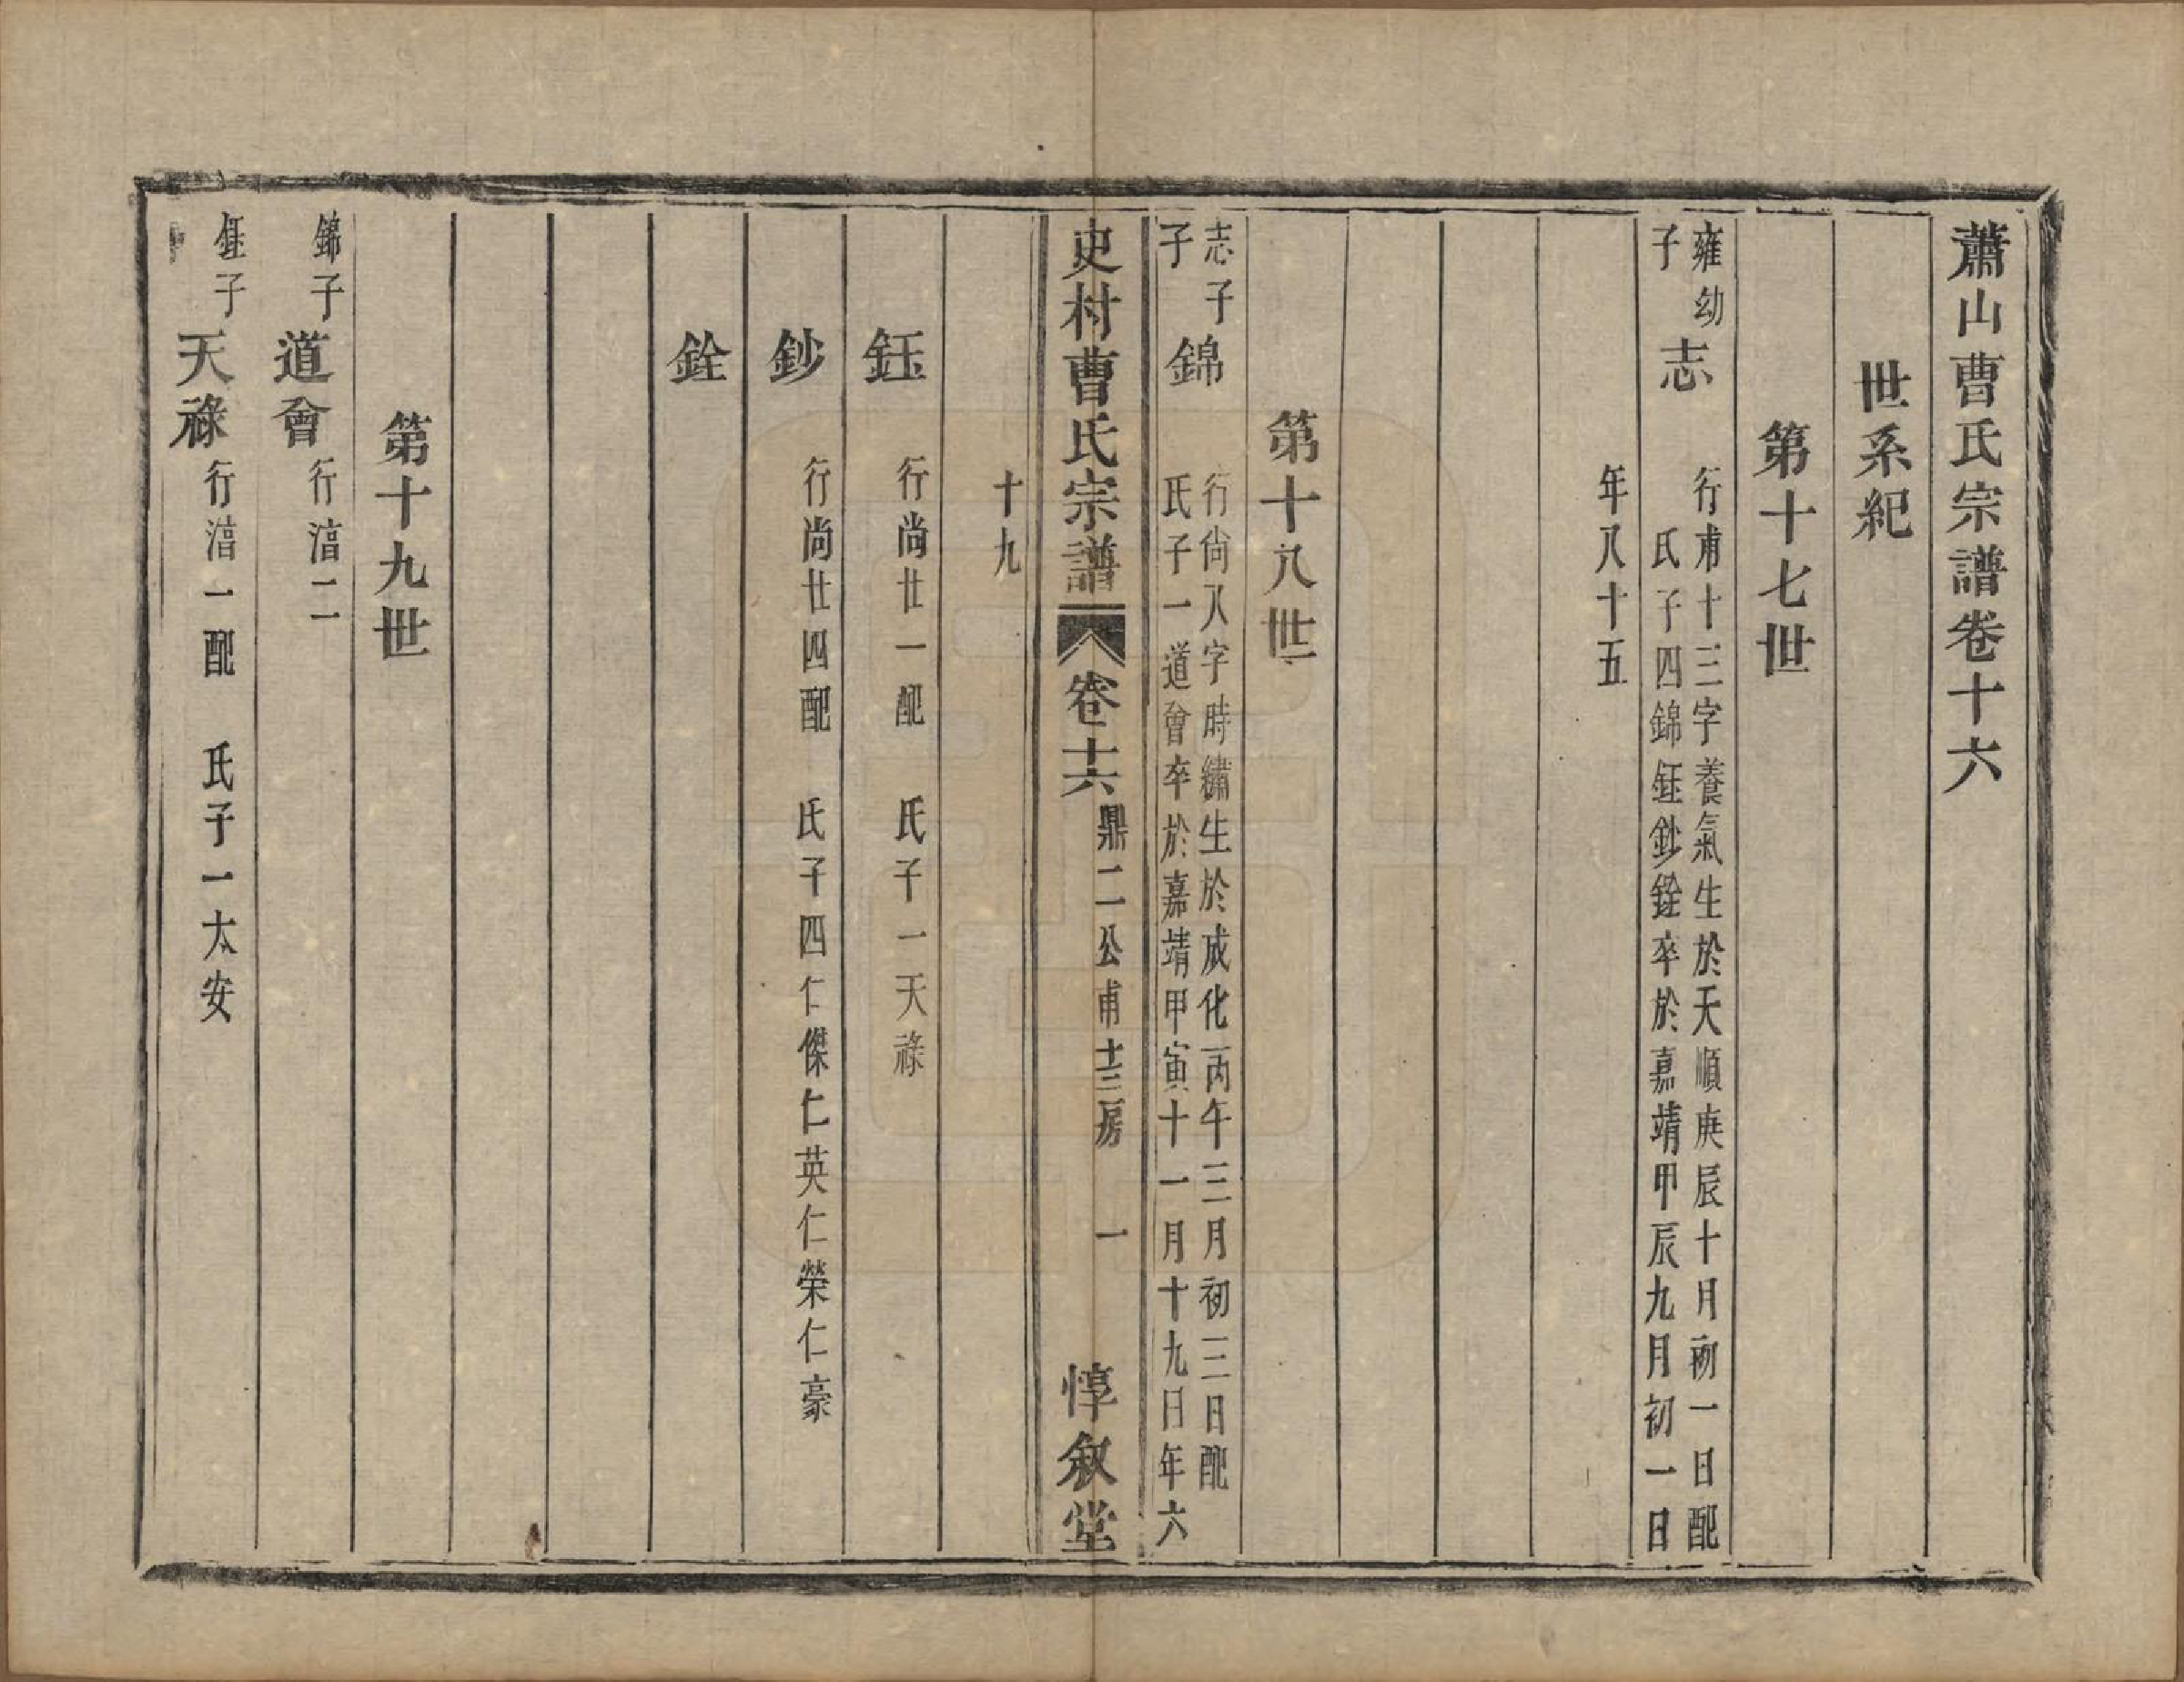 蕭山曹氏宗譜卷十六
世系紀
第十七世
雍幼
子
志
行甫十三字養氣生於天順庚辰十月初一日配
氏子四錦鈺鈔銓卒於嘉靖甲辰九月初一日
年八十五
第十八世
志子
子
錦
行尚八字時繡生於成化丙午三月初三日配
氏子一道會卒於嘉靖甲寅十一月十九日年六
史村曹氏宗譜
卷十六
鼎二公甫十三房
一
惇敘堂
十九
鈺
行尚廿一配 氏子一天祿
鈔
行尚廿四配 氏子四仁傑仁英仁榮仁豪
銓
第十九世
錦子
道會
行湻二
鈺子
天祿
行湻一配 氏子一太安